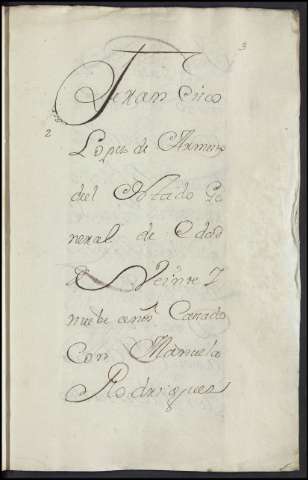 3
2
Franᶜⁱˢco
Lopez de Armen
del Stado Ge
neral de Edad
de Veinte Y
nuebe años Casado
Con Manuela
Rodrigues